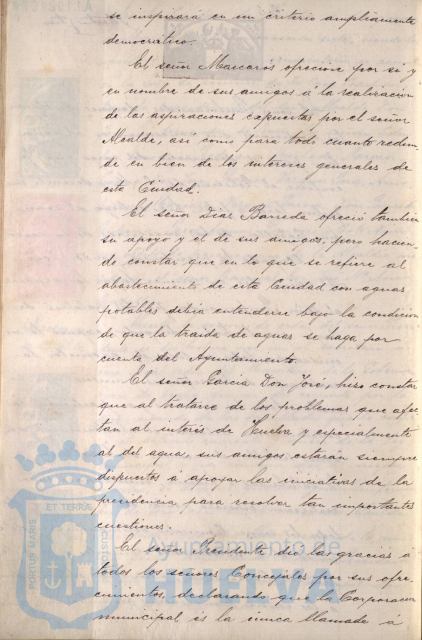 se inspirará en un criterio ampliamente
democrático.
El señor Mascarós ofreciose por sí y
en nombre de sus amigos á la realización
de las aspiraciones expuestas por el señor
Alcalde, así como para todo cuanto redun
de en bien de los intereses generales de
esta Ciudad.
El señor Díaz Barreda ofreció también
su apoyo y el de sus amigos, pero hacien
do constar que en lo que se refiere al
abastecimiento de esta Ciudad con aguas
potables debía entenderse bajo la condición
de que la traida de aguas se haga por
cuenta del Ayuntamiento.
El señor García Don José, hizo constar
que al tratarse de los problemas que afec
tan al interés de Huelva y especialmente
al del agua, sus amigos estarán siempre
dispuestos á apoyar las iniciativas de la
presidencia para resolver tan importantes
cuestiones.
El señor Presidente dió las gracias á
todos los señores Concejales por sus ofre
cimientos, declarando que la Corporación
municipal es la única llamada á
PORTUS MARIS
ET TERRÆ
CUSTODIA
Ayuntamiento de
HUELVA